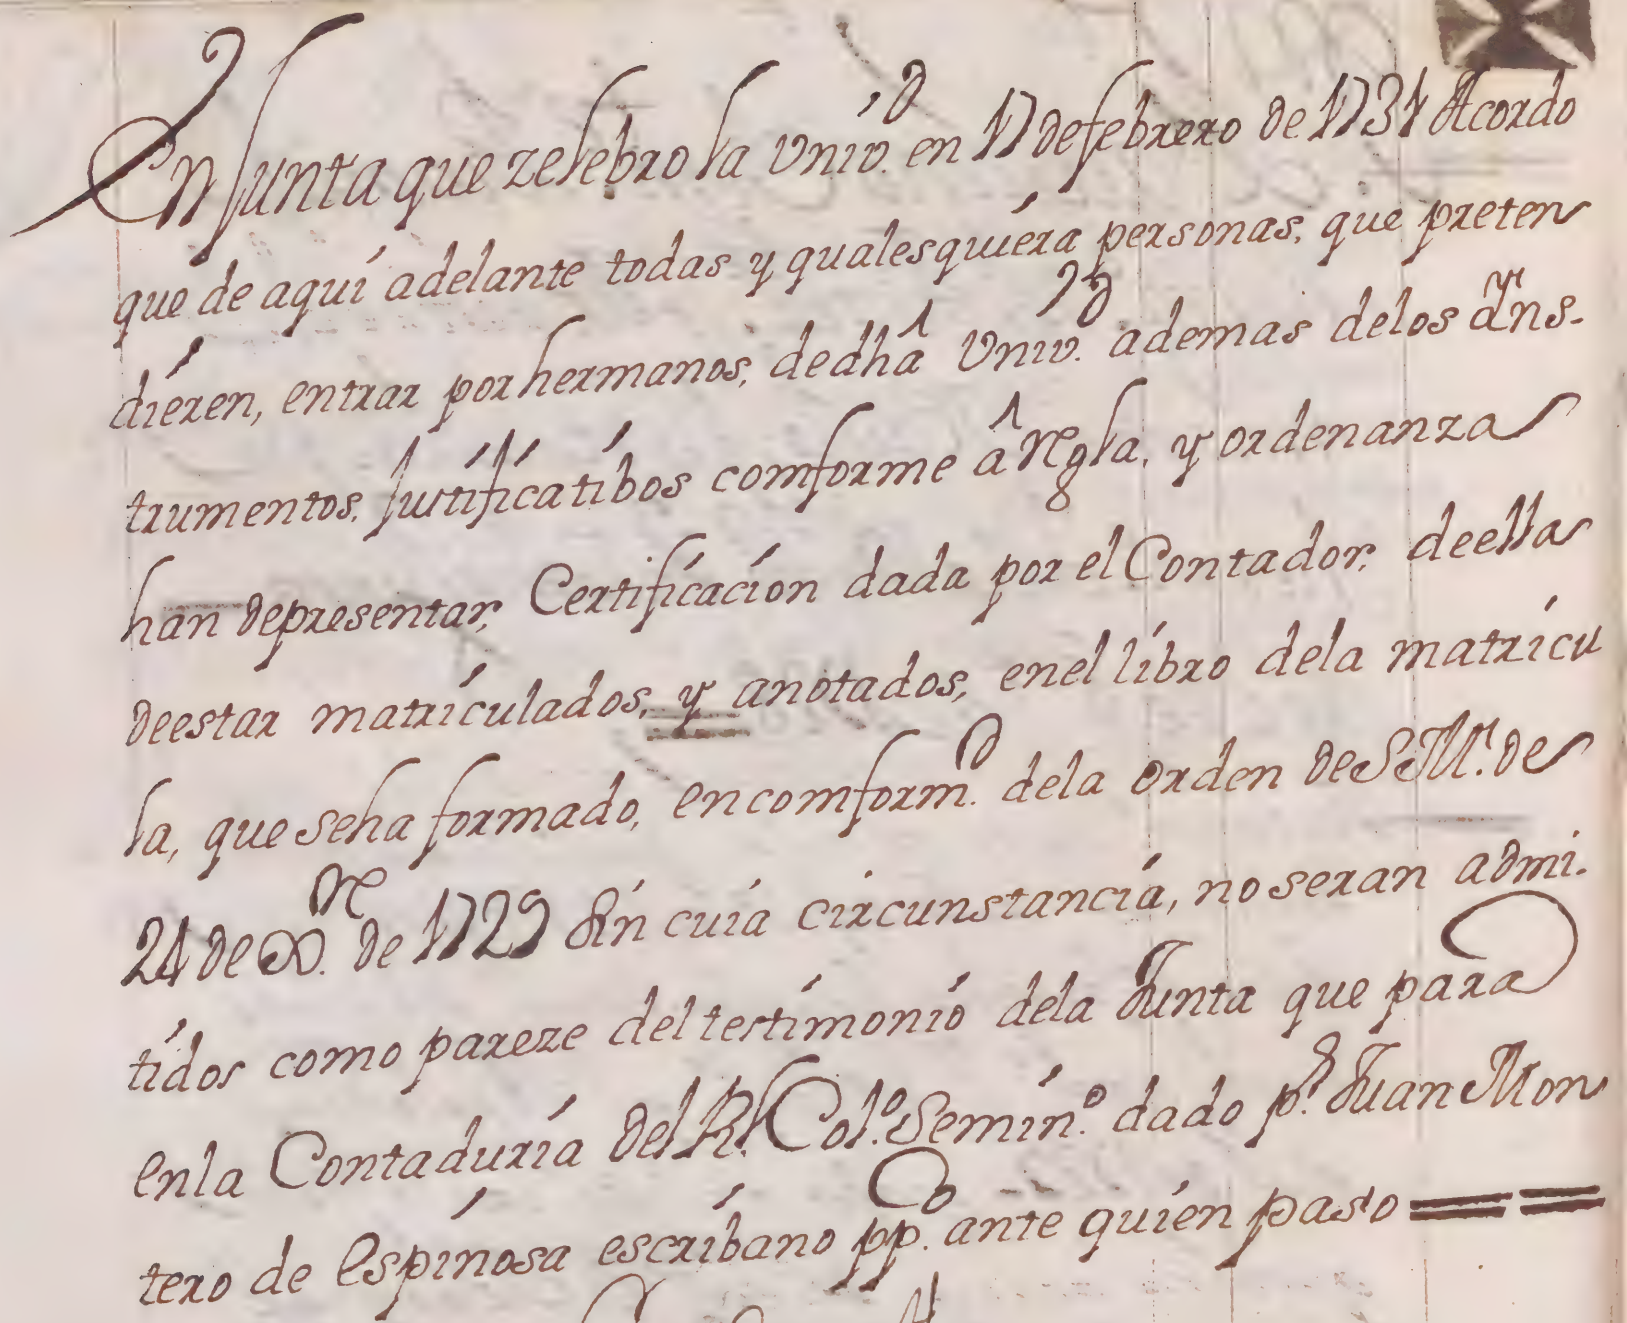 En Junta que zelebro la Univ.d en 17 de febrero de 1731 Acordo
que de aqui adelante todas y qualesquiera personas, que preten
dieren, entrar por hermanos, de dha Univ.d ademas de los Yns-
trumentos, Justificatibos comforme â Regla, y ordenanza
han de presentar, Certificacion dada por el Contador, de ella
de estar matriculados, y anotados, en el libro de la matricu
la, que se ha formado, en comform.d de la orden de S.M. de
24 de Ð.re de 1729 En cuia circunstancia, no seran admi-
tidos como pareze del testimonio de la Junta que para
en la Contaduria del Rl. Col.o Semin.o dado p.r Juan Mon
tero de Espinosa escribano pp.co ante quien paso